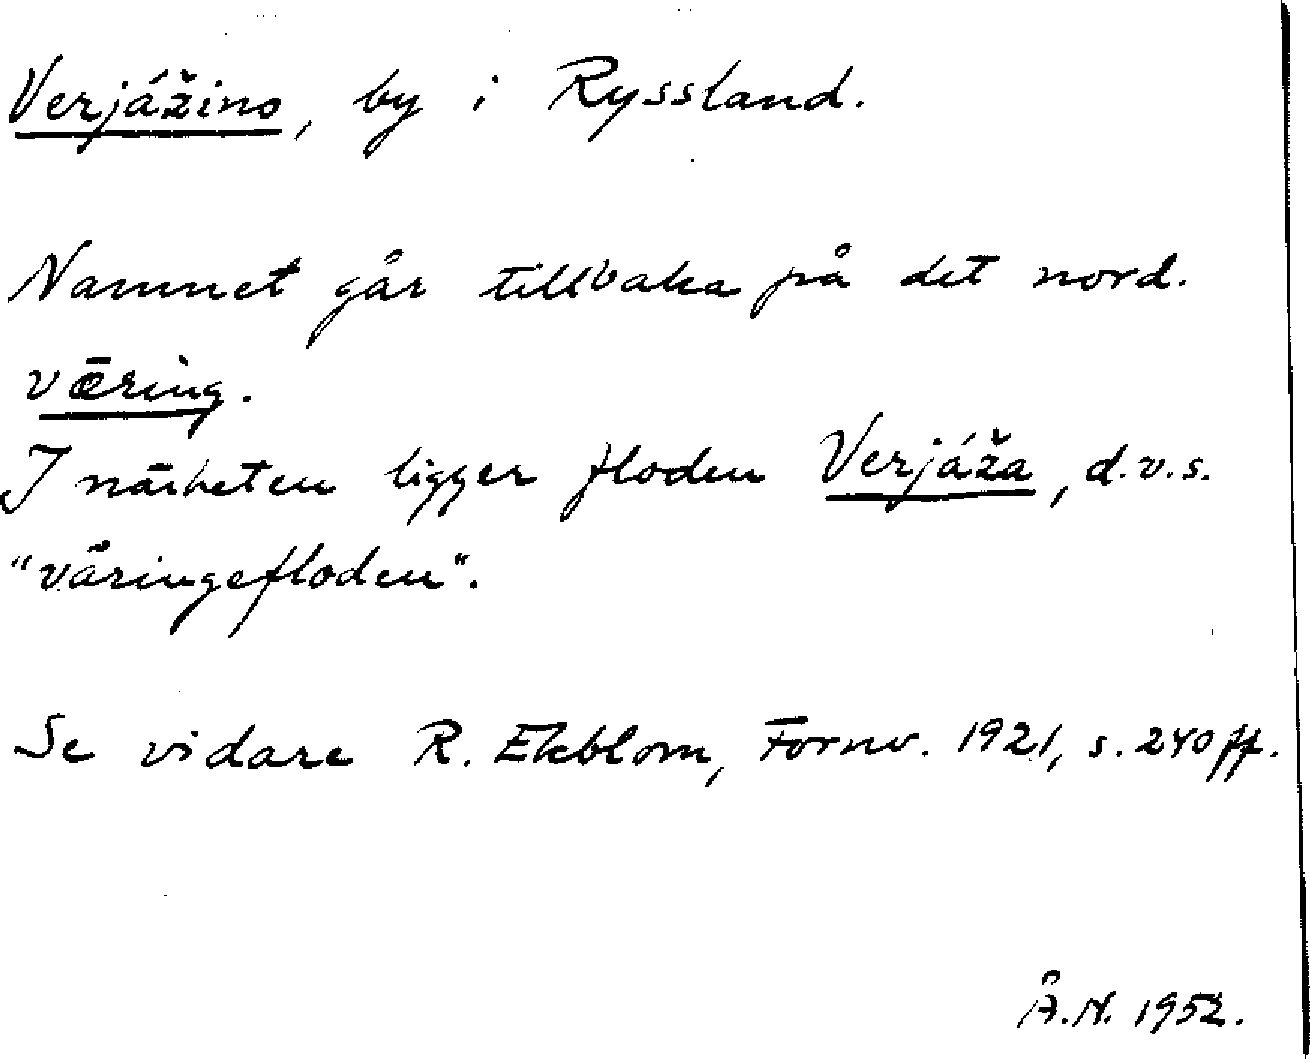 Verjážino, by i Ryssland.
Namnet går tillbaka på det nord.
vǣring.
I närheten ligger floden Verjáža, d.v.s.
"väringefloden".
Se vidare R. Ekblom, Fornv. 1921, s. 240 ff.
Å.N. 1952.